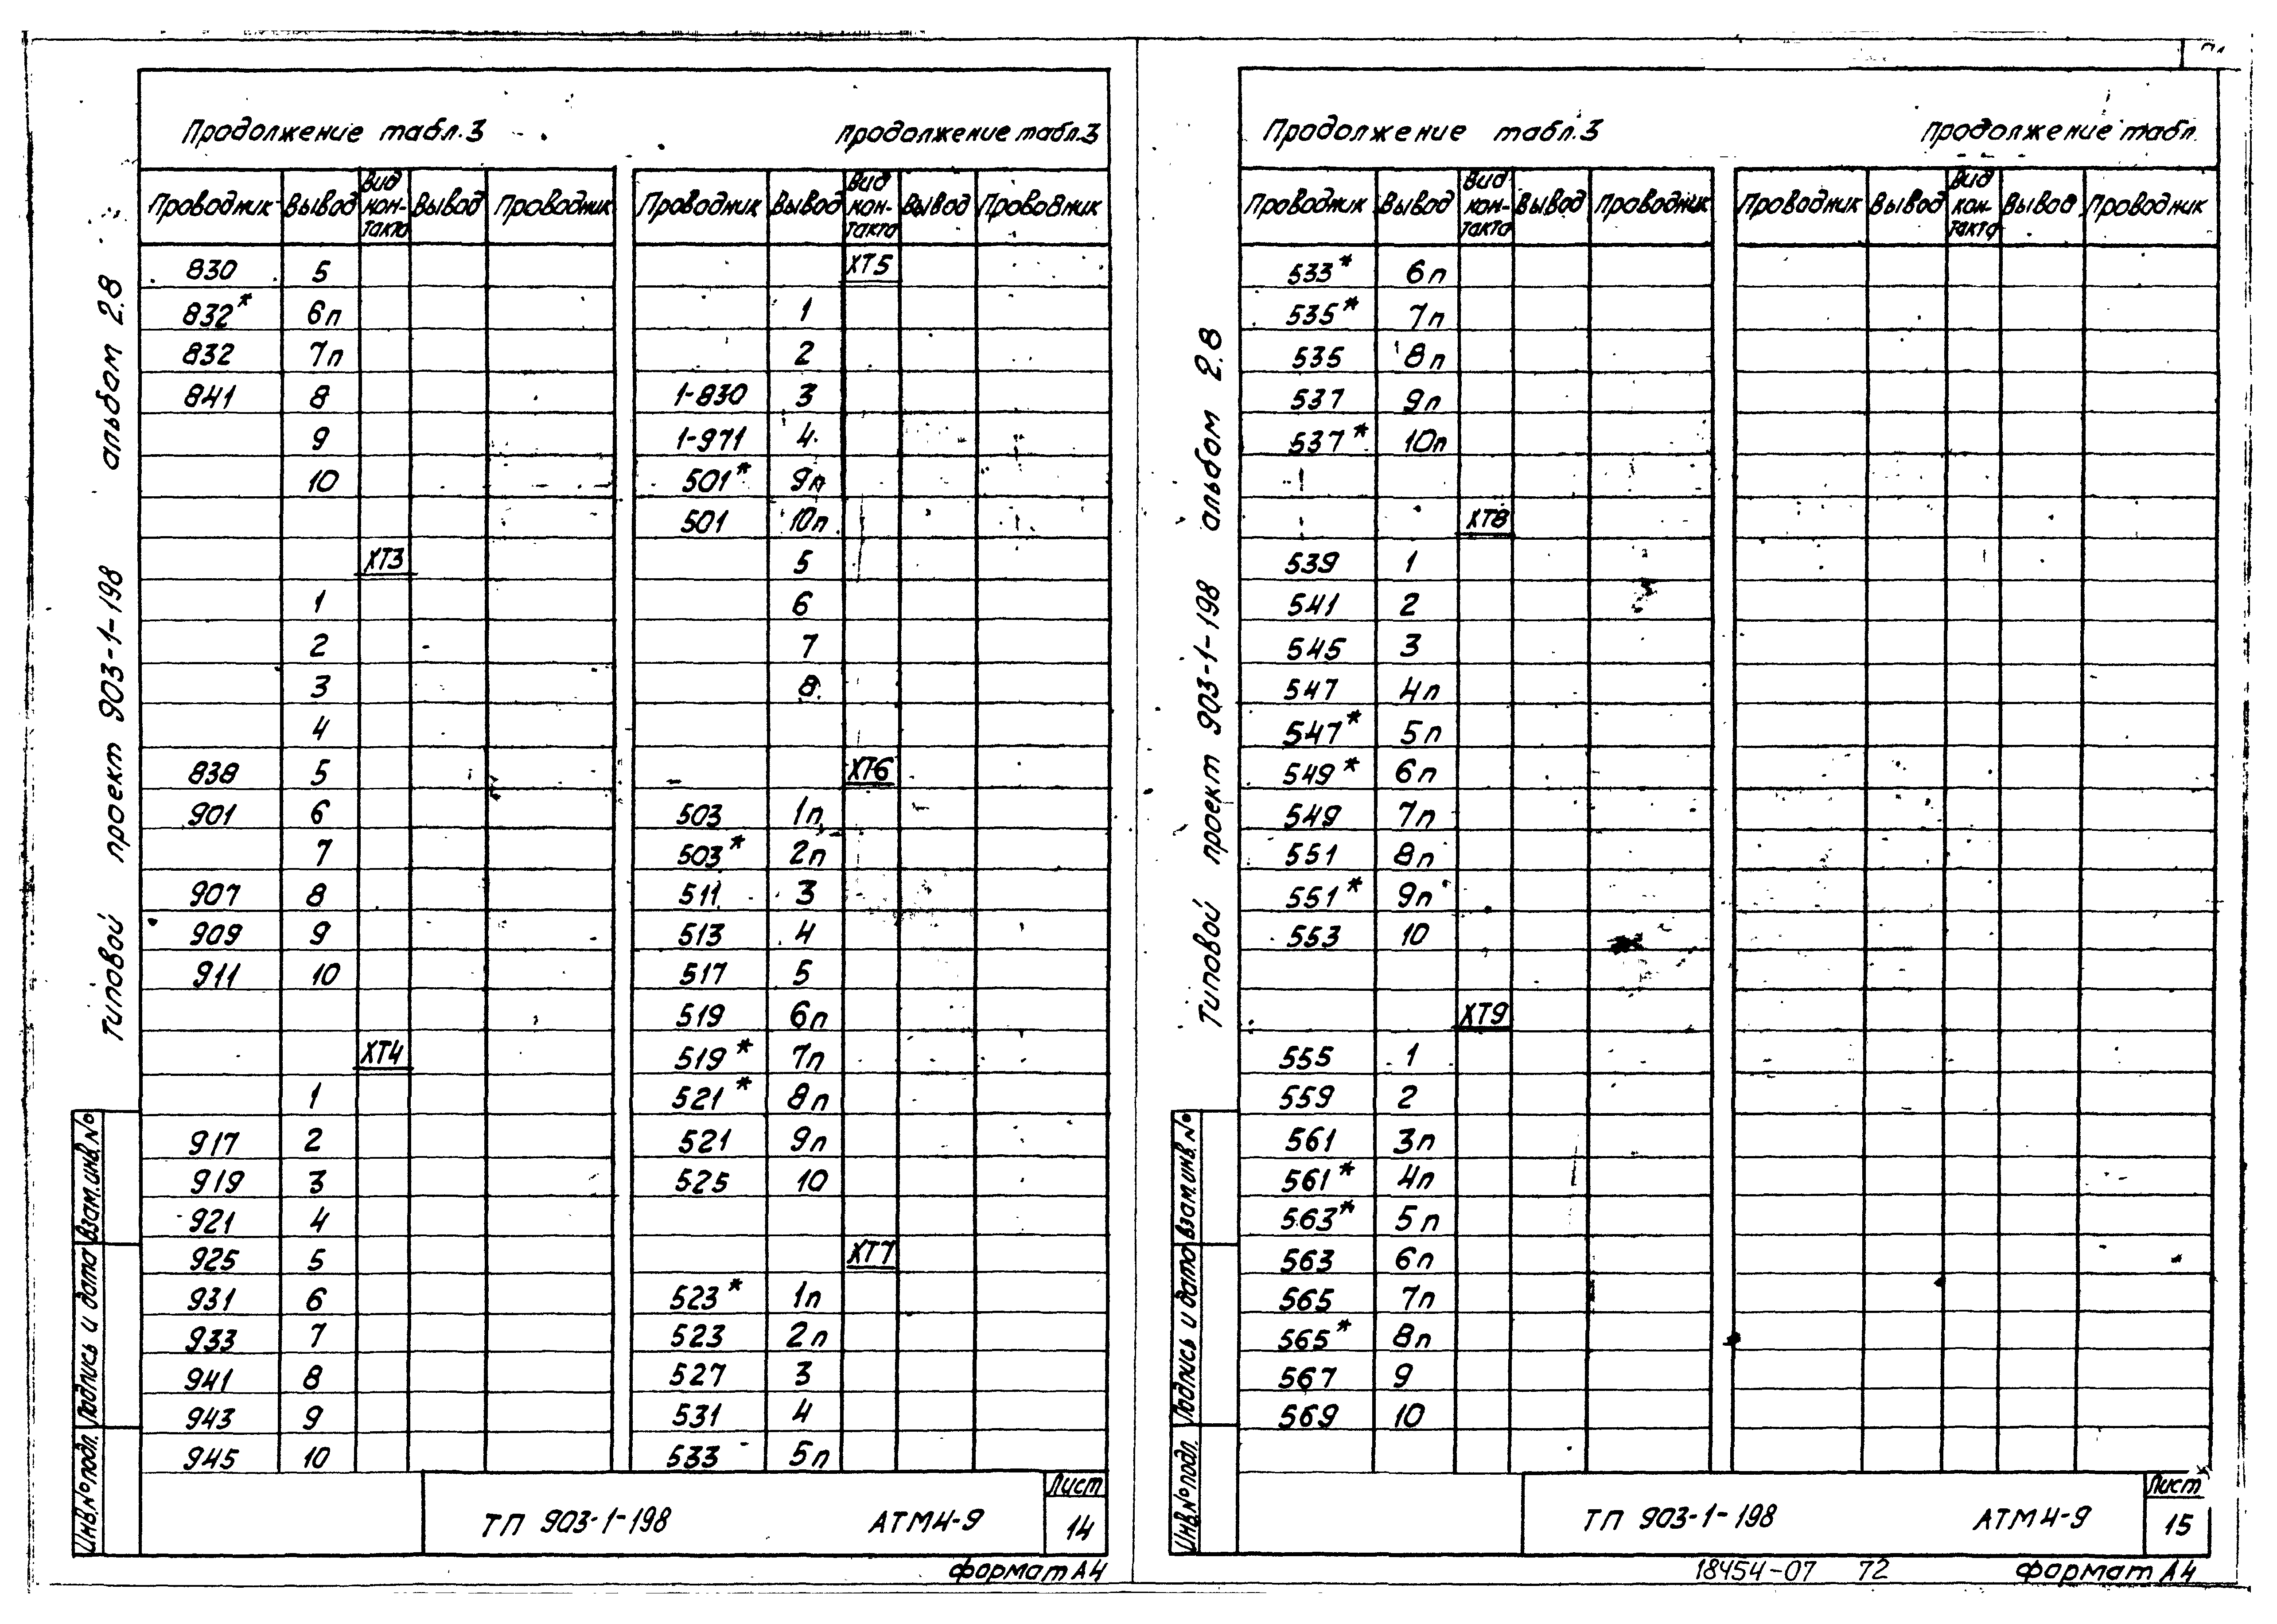 Продолжение табл.3
Проводник Вывод Вид кон-такта Вывод Проводник
830 5
832* 6п
832 7п
841 8
9
10
ХТ3
1
2
3
4
838 5
901 6
7
907 8
909 9
911 10
ХТ4
1
917 2
919 3
921 4
925 5
931 6
933 7
941 8
943 9
945 10
продолжение табл.3
Проводник Вывод Вид кон-такта Вывод Проводник
ХТ5
1
2
1-830 3
1-971 4
501* 9п
501 10п
5
6
7
8
ХТ6
503 1п
503* 2п
511 3
513 4
517 5
519 6п
519* 7п
521* 8п
521 9п
525 10
ХТ7
523* 1п
523 2п
527 3
531 4
533 5п
Типовой проект 903-1-198 альбом 2.8
Инв.№подл. Подпись и дата Взам.инв.№
ТП 903-1-198 АТМ4-9
Лист
14
формат А4
Продолжение табл.3
Проводник Вывод Вид кон-такта Вывод Проводник
533* 6п
535* 7п
535 8п
537 9п
537* 10п
ХТ8
539 1
541 2
545 3
547 4п
547* 5п
549* 6п
549 7п
551 8п
551* 9п
553 10
ХТ9
555 1
559 2
561 3п
561* 4п
563* 5п
563 6п
565 7п
565* 8п
567 9
569 10
продолжение табл.
Проводник Вывод Вид кон-такта Вывод Проводник
Типовой проект 903-1-198 альбом 2.8
Инв.№подл. Подпись и дата Взам.инв.№
ТП 903-1-198 АТМ4-9
Лист
15
18454-07 72 формат А4